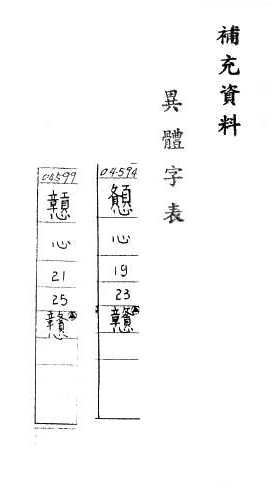 補充資料
異體字表
04594
心
19
23
戇
04599
心
21
25
戇